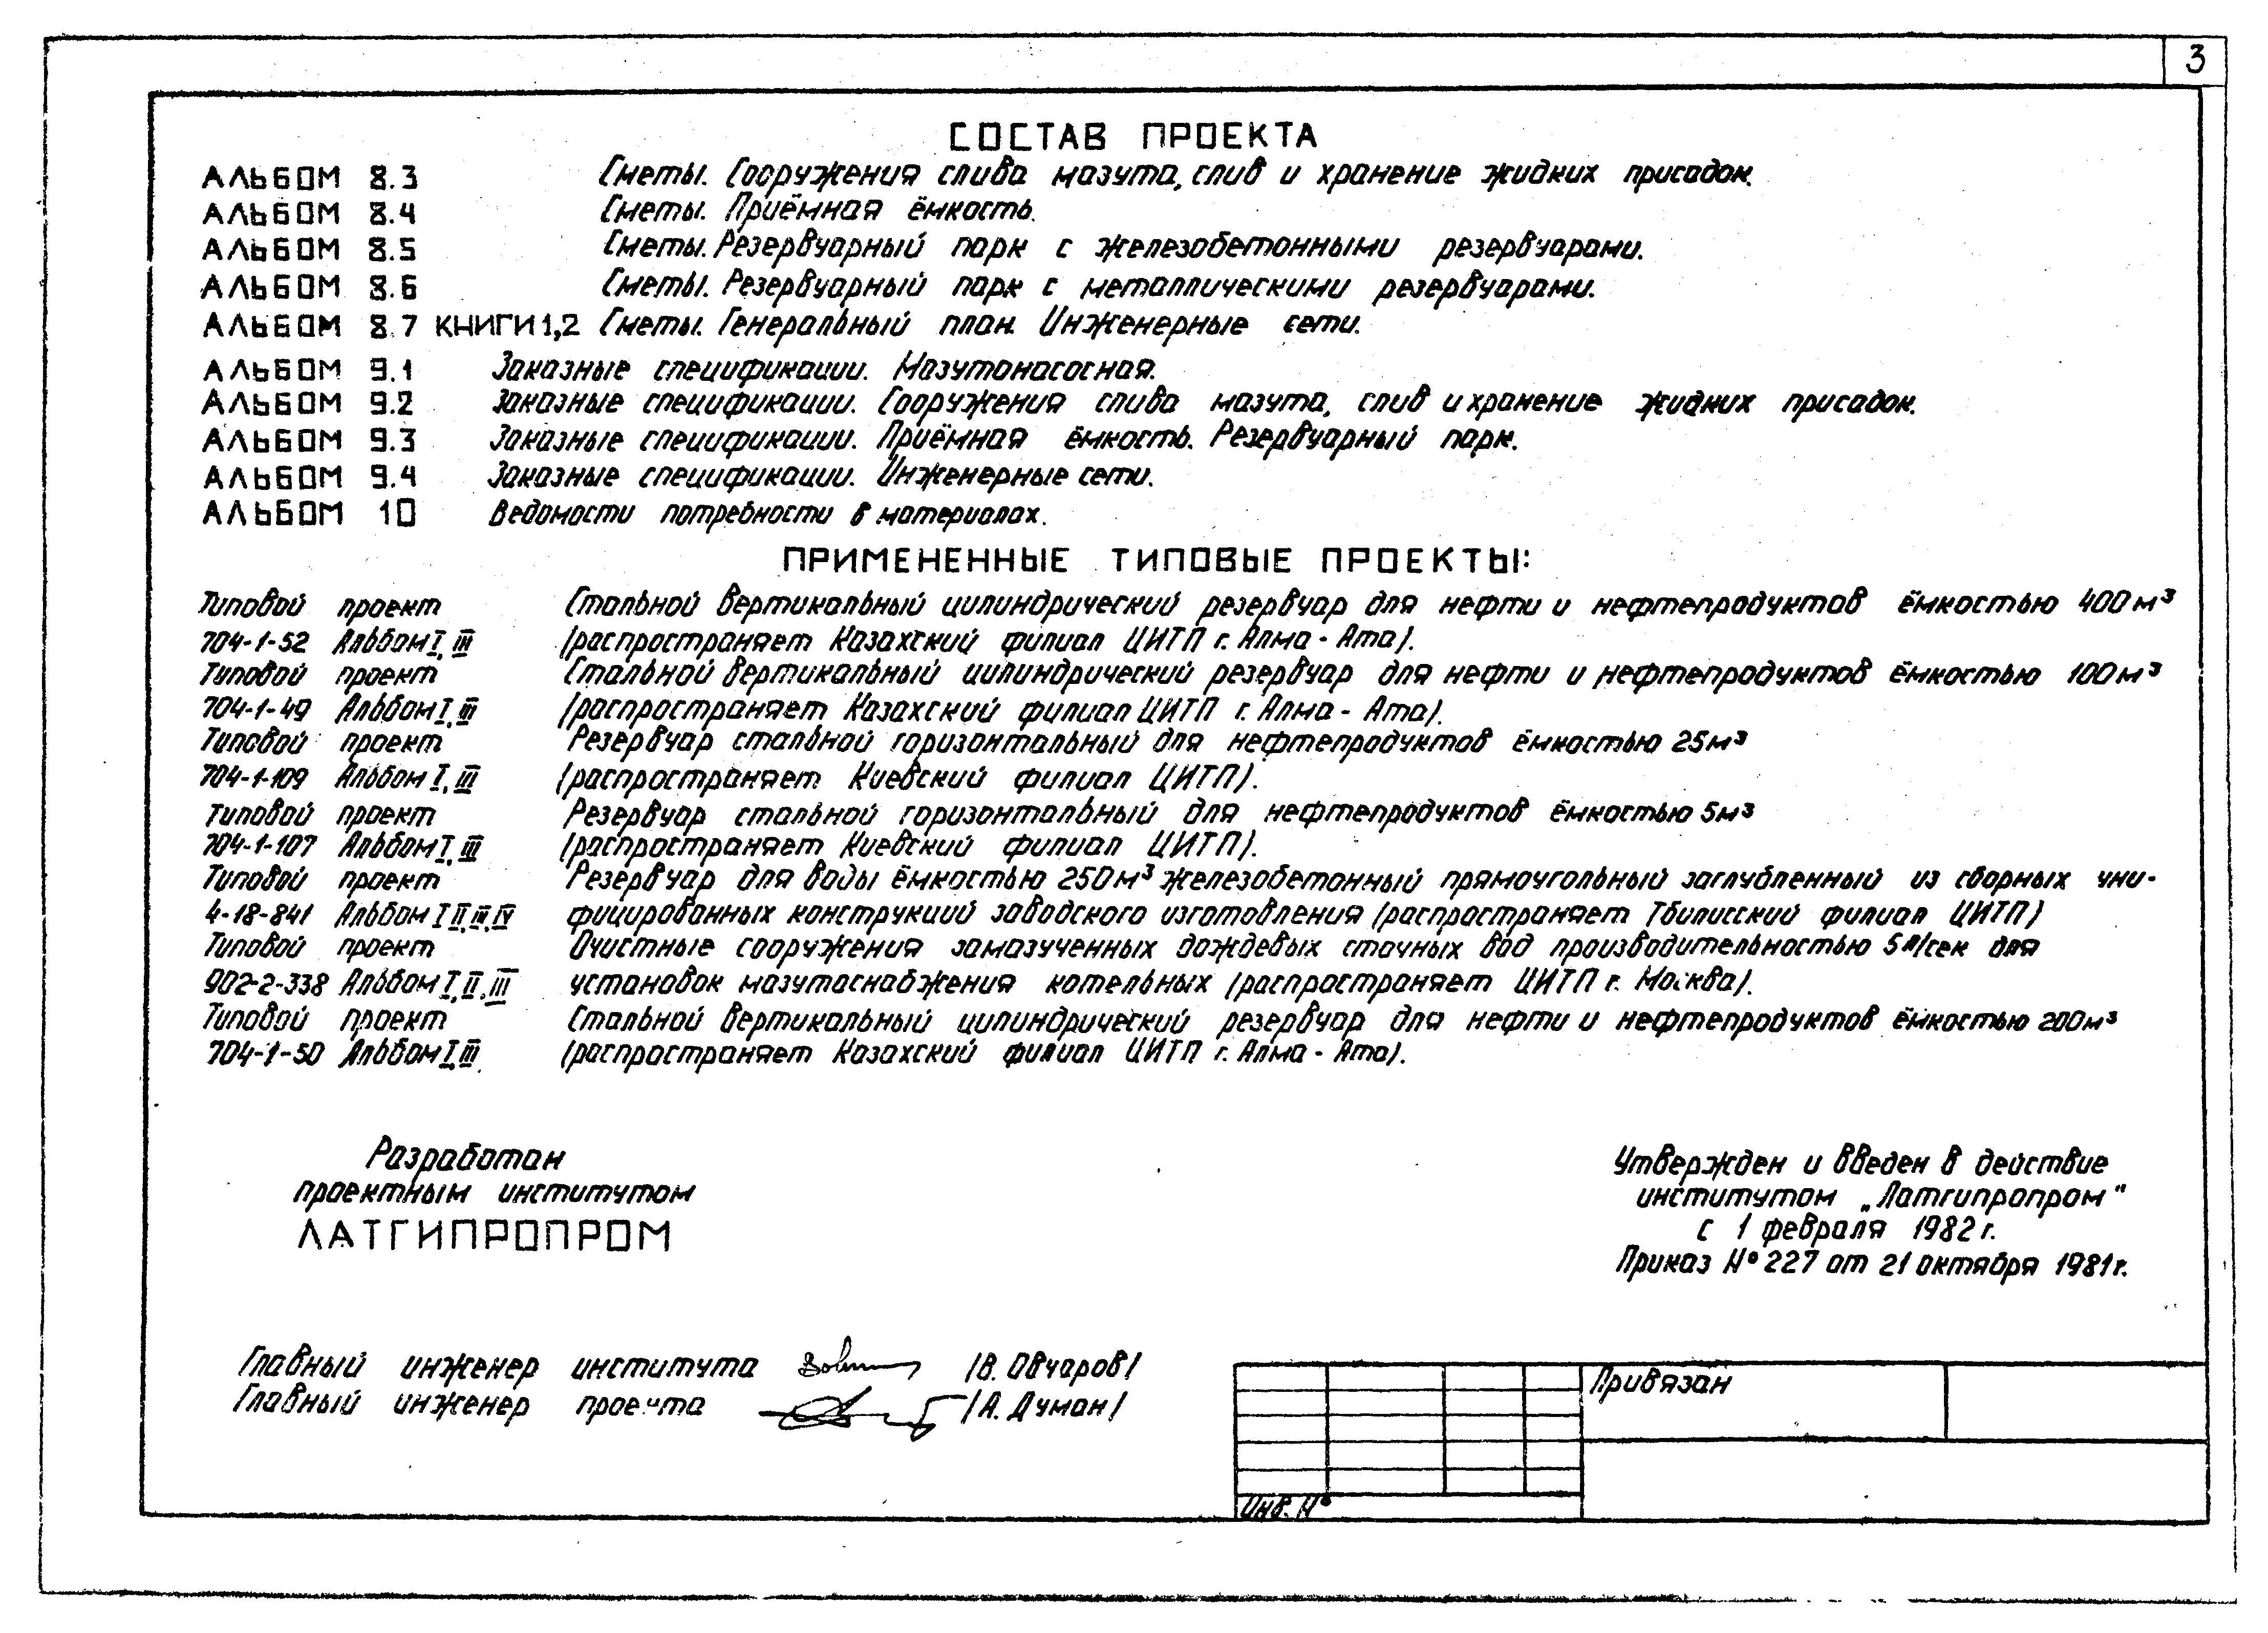 3
СОСТАВ ПРОЕКТА
АЛЬБОМ 8.3 Сметы. Сооружения слива мазута, слив и хранение жидких присадок.
АЛЬБОМ 8.4 Сметы. Приёмная ёмкость.
АЛЬБОМ 8.5 Сметы. Резервуарный парк с железобетонными резервуарами.
АЛЬБОМ 8.6 Сметы. Резервуарный парк с металлическими резервуарами.
АЛЬБОМ 8.7 КНИГИ 1,2 Сметы. Генеральный план. Инженерные сети.
АЛЬБОМ 9.1 Заказные спецификации. Мазутонасосная.
АЛЬБОМ 9.2 Заказные спецификации. Сооружения слива мазута, слив и хранение жидких присадок.
АЛЬБОМ 9.3 Заказные спецификации. Приёмная ёмкость. Резервуарный парк.
АЛЬБОМ 9.4 Заказные спецификации. Инженерные сети.
АЛЬБОМ 10 Ведомости потребности в материалах.
ПРИМЕНЕННЫЕ ТИПОВЫЕ ПРОЕКТЫ:
Типовой проект Стальной вертикальный цилиндрический резервуар для нефти и нефтепродуктов ёмкостью 400 м³
704-1-52 Альбом I, III (распространяет Казахский филиал ЦИТП г. Алма-Ата).
Типовой проект Стальной вертикальный цилиндрический резервуар для нефти и нефтепродуктов ёмкостью 100 м³
704-1-49 Альбом I, III (распространяет Казахский филиал ЦИТП г. Алма-Ата).
Типовой проект Резервуар стальной горизонтальный для нефтепродуктов ёмкостью 25 м³
704-1-109 Альбом I, III (распространяет Киевский филиал ЦИТП).
Типовой проект Резервуар стальной горизонтальный для нефтепродуктов ёмкостью 5 м³
704-1-107 Альбом I, III (распространяет Киевский филиал ЦИТП).
Типовой проект Резервуар для воды ёмкостью 250 м³ железобетонный прямоугольный заглубленный из сборных уни-
4-18-841 Альбом I, II, III, IV фицированных конструкций заводского изготовления (распространяет Тбилисский филиал ЦИТП)
Типовой проект Очистные сооружения замазученных дождевых сточных вод производительностью 5 л/сек для
902-2-338 Альбом I, II, III установок мазутаснабжения котельных (распространяет ЦИТП г. Москва).
Типовой проект Стальной вертикальный цилиндрический резервуар для нефти и нефтепродуктов ёмкостью 200 м³
704-1-50 Альбом I, III (распространяет Казахский филиал ЦИТП г. Алма-Ата).
Разработан
проектным институтом
ЛАТГИПРОПРОМ
Утвержден и введен в действие
институтом „Латгипропром"
с 1 февраля 1982 г.
Приказ № 227 от 21 октября 1981 г.
Главный инженер института /В. Овчаров/
Главный инженер проекта /А. Думан/
Привязан
Инв. №